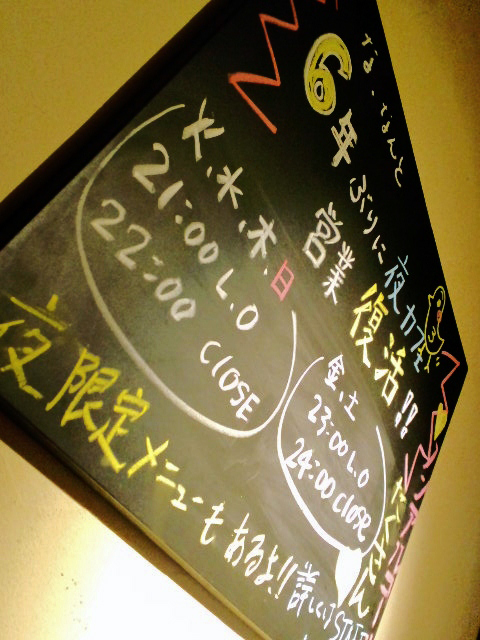 なな、なんと
6年ぶりに夜カフェ
営業復活!!
火.水.木.日
21:00 L.O
22:00 CLOSE
金.土
23:00 L.O
24:00 CLOSE
夜限定メニューもあるよ!!